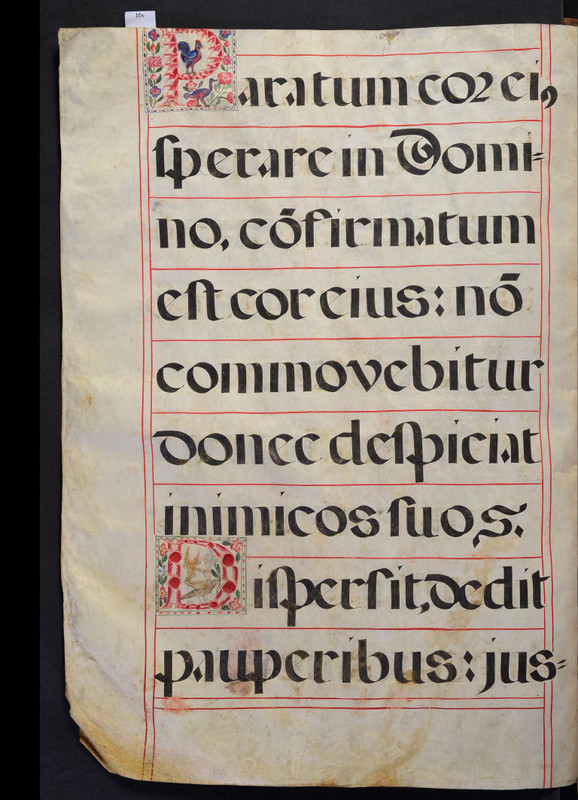 10v
Paratum cor ei,
sperare in Domi=
no, cōfirmatum
est cor eius: nō
commovebitur
donec despiciat
inimicos suos.
Dispersit, dedit
pauperibus: jus=